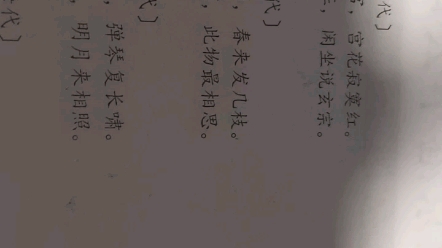 代〕
，宫花寂寞红。
，闲坐说玄宗。
代〕
，春来发几枝。
，此物最相思。
代〕
，弹琴复长啸。
，明月来相照。
代〕